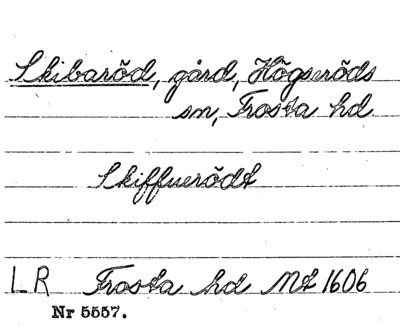 Skibaröd, gård, Högseröds
sn, Frosta hd.
Skiffuerödt
LR Frosta hd Mt 1606
Nr 5557.